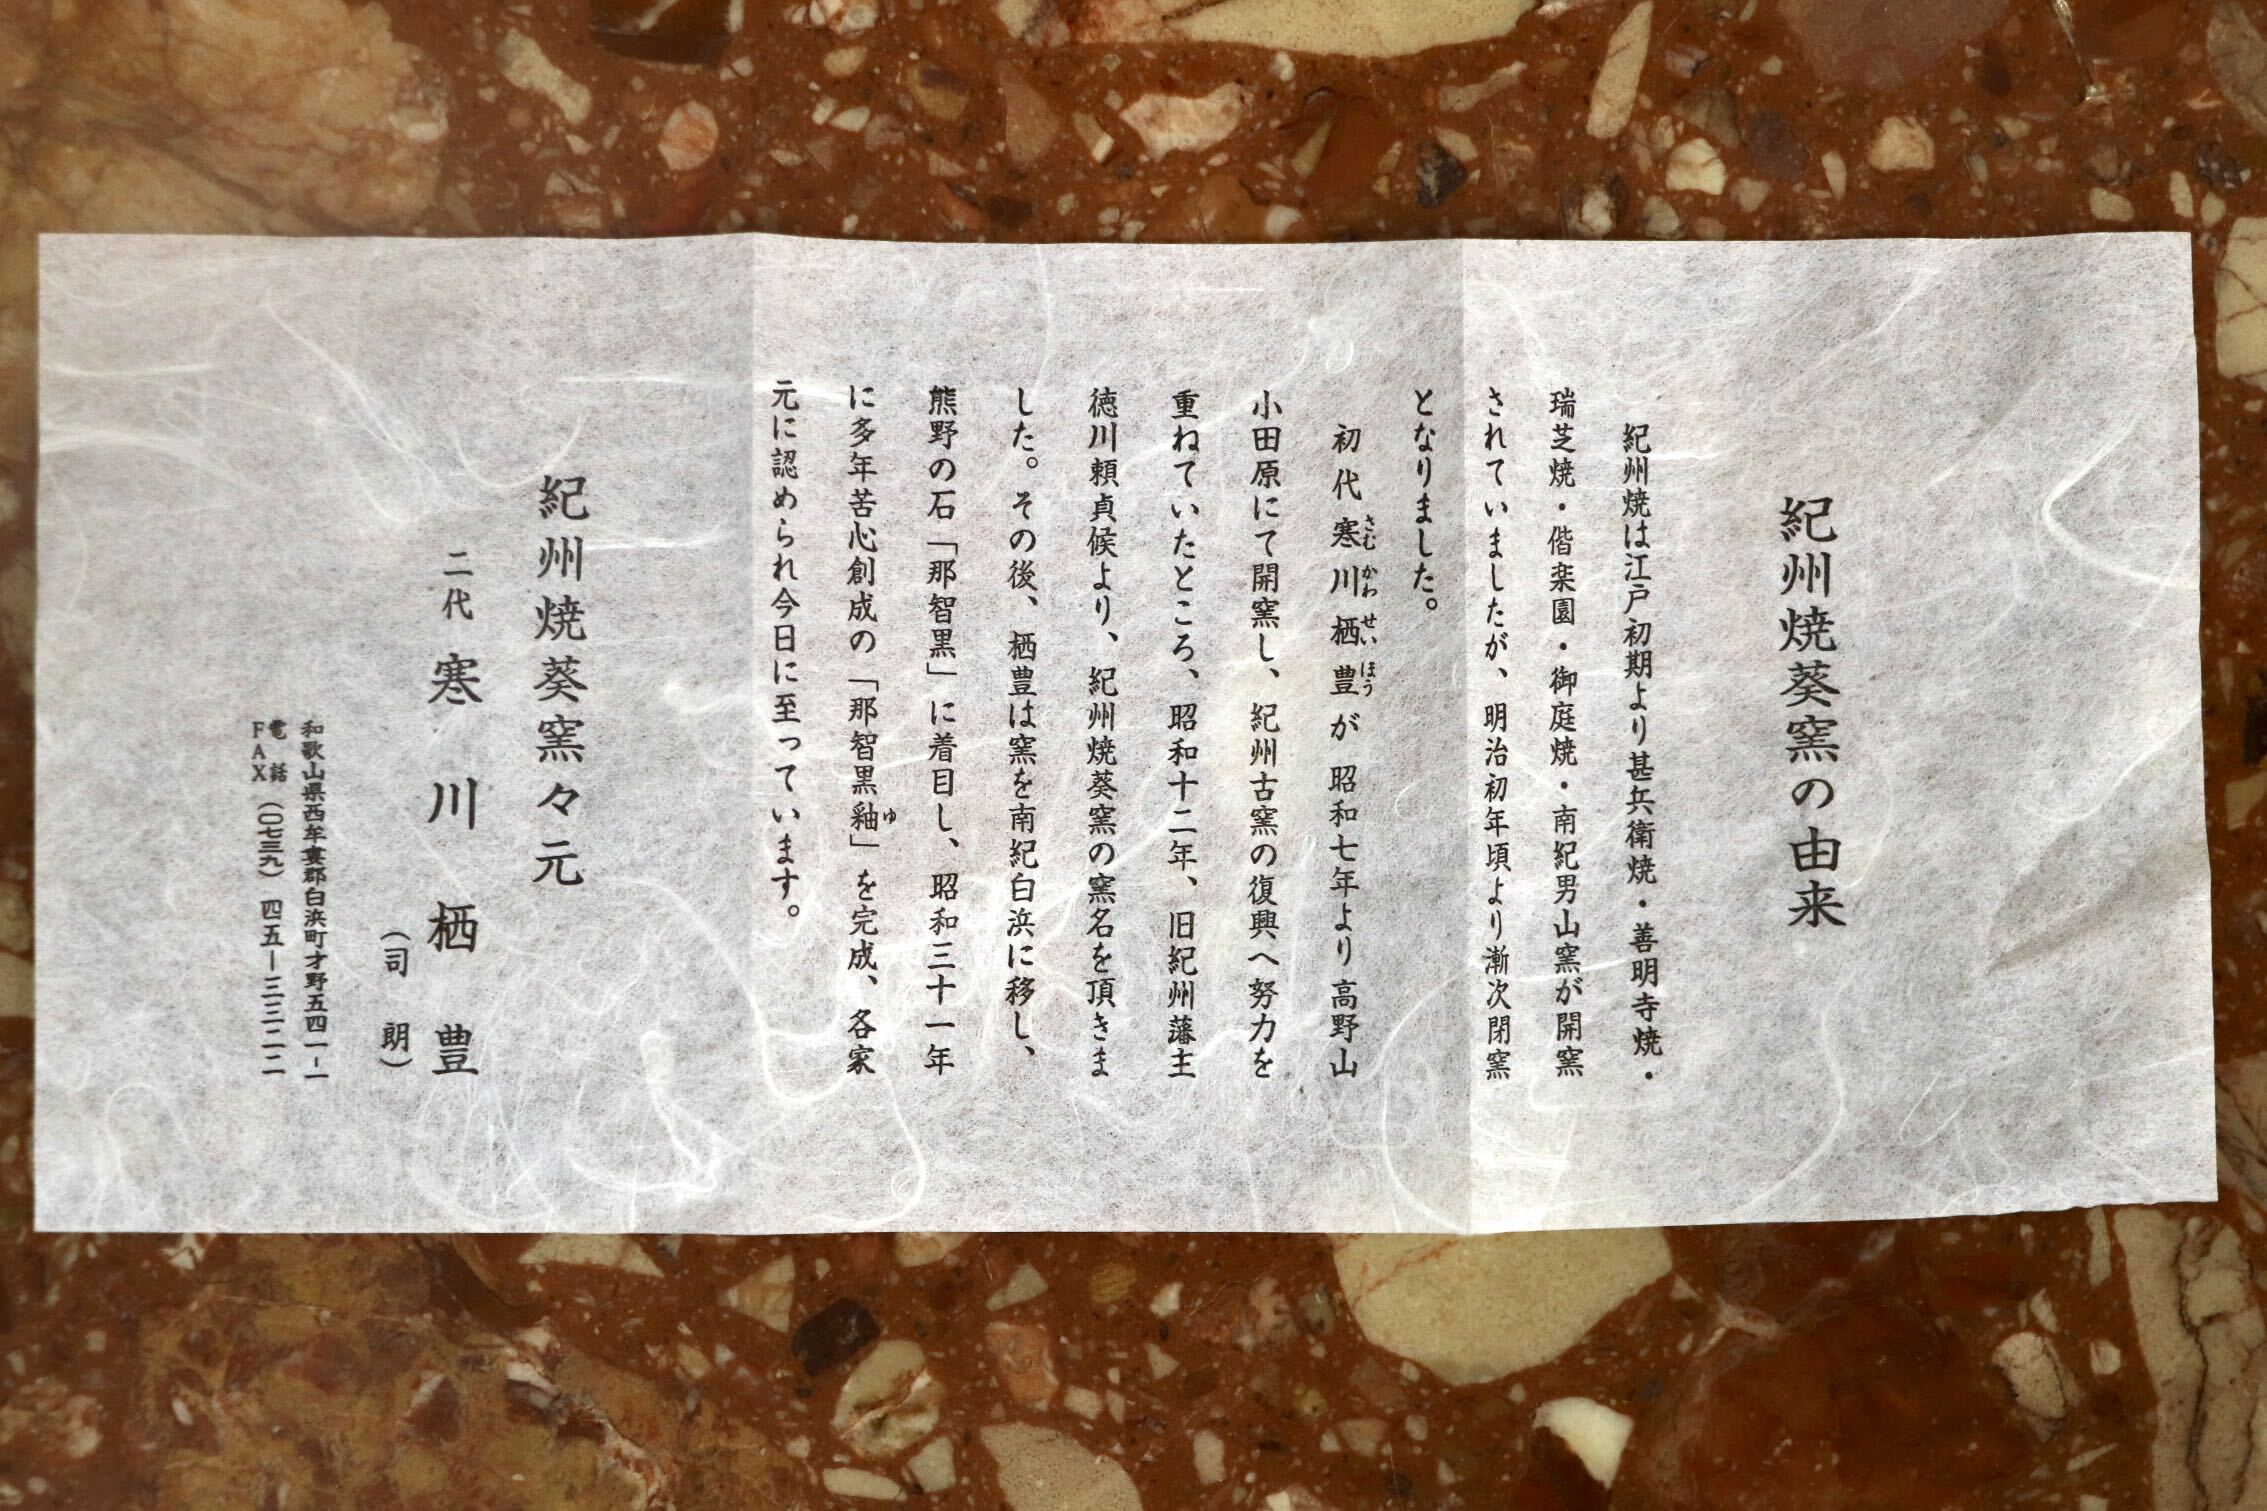 紀州焼葵窯の由来
紀州焼は江戸初期より甚兵衛焼・善明寺焼・
瑞芝焼・偕楽園・御庭焼・南紀男山窯が開窯
されていましたが、明治初年頃より漸次閉窯
となりました。
初代寒川栖豊が昭和七年より高野山
さむかわせいほう
小田原にて開窯し、紀州古窯の復興へ努力を
重ねていたところ、昭和十二年、旧紀州藩主
徳川頼貞候より、紀州焼葵窯の窯名を頂きま
した。その後、栖豊は窯を南紀白浜に移し、
熊野の石「那智黒」に着目し、昭和三十一年
に多年苦心創成の「那智黒釉」を完成、各家
ゆ
元に認められ今日に至っています。
紀州焼葵窯々元
二代 寒川栖豊
(司朗)
和歌山県西牟婁郡白浜町才野五四一-一
電話
FAX (〇七三九)四五-三三二二